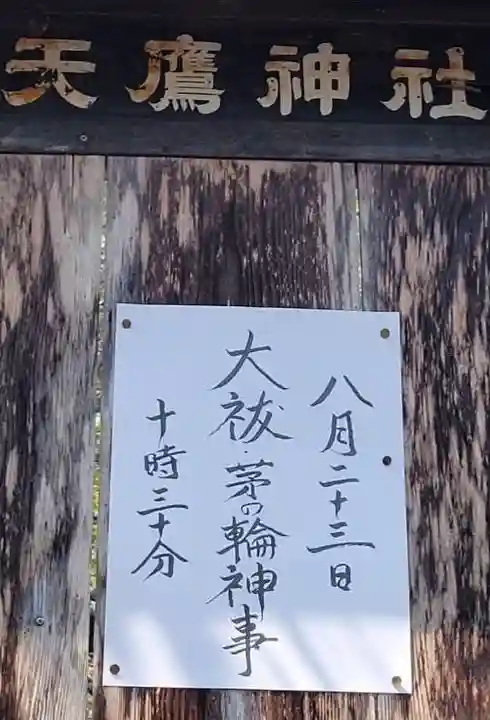 天鷹神社
八月二十三日
大祓・茅の輪神事
十時三十分